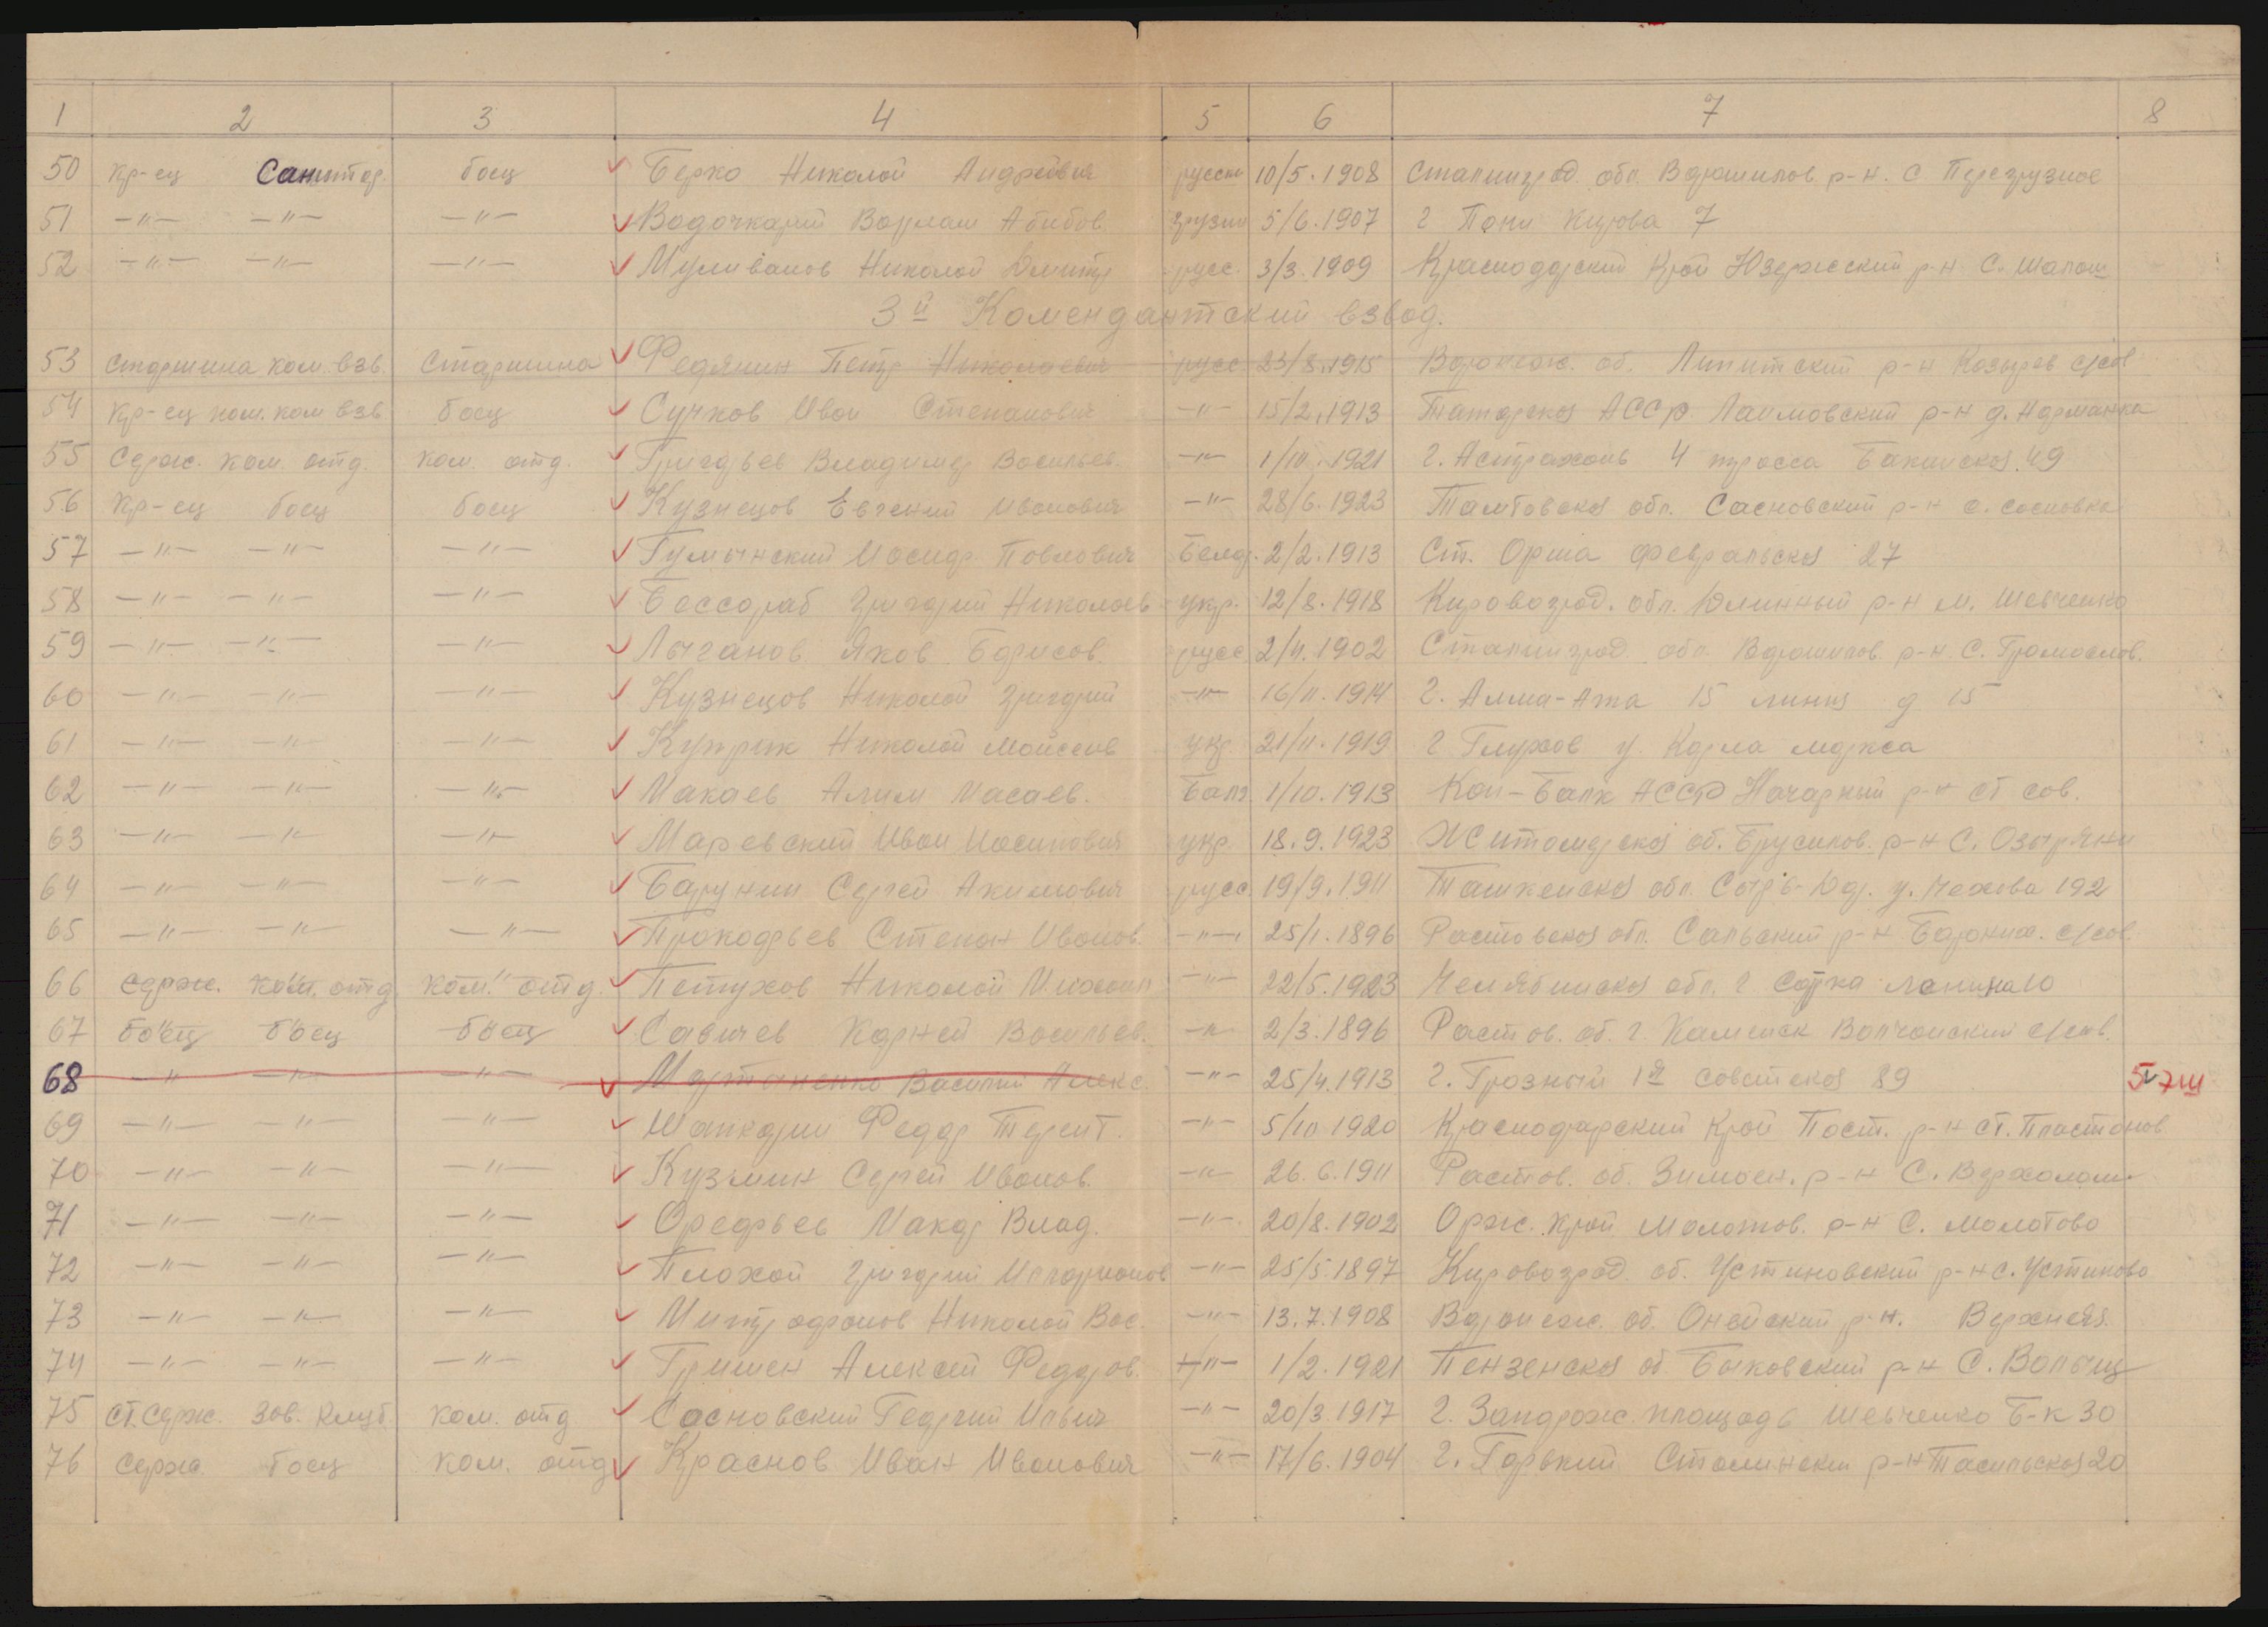 1 2 3 4 5 6 7 8
50 кр-ец Санитар. боец Берко Николай Андреевич русск 10/5.1908 Сталинград обл. Ворошилов. р-н. с Перегрузное
51 -"- -"- -"- Водочкарий Варлам Абибов. грузин 5/6.1907 г Поти Кирова 7
52 -"- -"- -"- Муливанов Николай Дмитр русс. 3/3.1909 Краснодарский Край р-н С.
3й Комендантский взвод.
53 старшина ком. взв. Старшина Федянин Петр Николаевич русс. 23/8.1915 Воронеж. об. Липитский р-н Козырев с/сов
54 Кр-ец пом. ком взв боец Сучков Иван Степанович -"- 15/2.1913 Татарская АССР Лаимовский р-н д. Нармонка
55 Серж. ком. отд. ком. отд. Григорьев Владимир Васильев. -"- 1/10.1921 г. Астрахань 4 трасса Бакинская. 49
56 Кр-ец боец боец Кузнецов Евгений Иванович -"- 28/6.1923 Тамбовская обл. Сасновский р-н с. сосновка
57 -"- -"- -"- Гумынский Иосиф. Павлович Белор. 2/2.1913 Ст. Орша февральская 27
58 -"- -"- -"- Бессараб Григорий Николаев укр. 12/8.1918 Кировоград. обл. р-н м. Шевченко
59 -"- -"- -"- Лычганов Яков Борисов. русс. 2/4.1902 Сталинград обл. Ворошилов р-н С. Громослов.
60 -"- -"- -"- Кузнецов Николай Григорий -"- 16/11.1914 г. Алма-Ата 15 линия д 15
61 -"- -"- -"- Куприк Николай Моисеев укр. 21/11.1919 г Глухов у. Карла маркса
62 -"- -"- -"- Макаев Алим Масаев. Балк. 1/10.1913 Кон-Балк АССР р-н ст сов.
63 -"- -"- -"- Маревский Иван Иосипович укр. 18.9.1923 Житомирская об. Брусилов. р-н С. Озыряни
64 -"- -"- -"- Барунин Сергей Акимович русс. 19/9.1911 Ташкенская обл. Сыр-Дар. у. Чехова 192
65 -"- -"- -"- Прокофьев Степан Иванов. -"- 25/1.1896 Растовская обл. Сальский р-н Бараних. с/сов.
66 серж. ком. отд. ком. отд. Петухов Николай Михаил -"- 22/5.1923 Челябинская обл. г Сатка Ленина 10
67 боец боец боец Савичев Карней Васильев. -"- 2/3.1896 Растов. об. г. Каменск Волчанский с/сов.
68 -"- -"- -"- Мартыненко Василий Алекс. -"- 25/4.1913 г. Грозный 1я Советская 89
69 -"- -"- -"- Шапкарин Федор Терент. -"- 5/10 1920 Краснодарский Край Пост. р-н ст. Пластонов
70 -"- -"- -"- Кузмин Сергей Иванов. -"- 26.6.1911 Растов. об. Зимовн. р-н С. Верхолом.
71 -"- -"- -"- Орефьев Макар Влад. -"- 20/8.1902 Ордж. край Молотов. р-н С. Молотово
72 -"- -"- -"- Плохой Григорий Иларионов -"- 25/5.1897 Кировоград об. Устиновский р-н с. Устиново
73 -"- -"- -"- Митрофанов Николай Вас. -"- 13.7.1908 Воронеж. об. р-н. Верхняя.
74 -"- -"- -"- Гришен Алексей Федоров. -"- 1/2.1921 Пензенская об. Быковский р-н С.
75 ст. серж. Зав. Клуб. ком. отд Сосновский Георгий Ильич -"- 20/3.1917 г. Запорож. площадь Шевченко Б-к 30
76 серж. боец ком. отд Краснов Иван Иванович -"- 17/6.1904 г. Горький Сталинский р-н 20